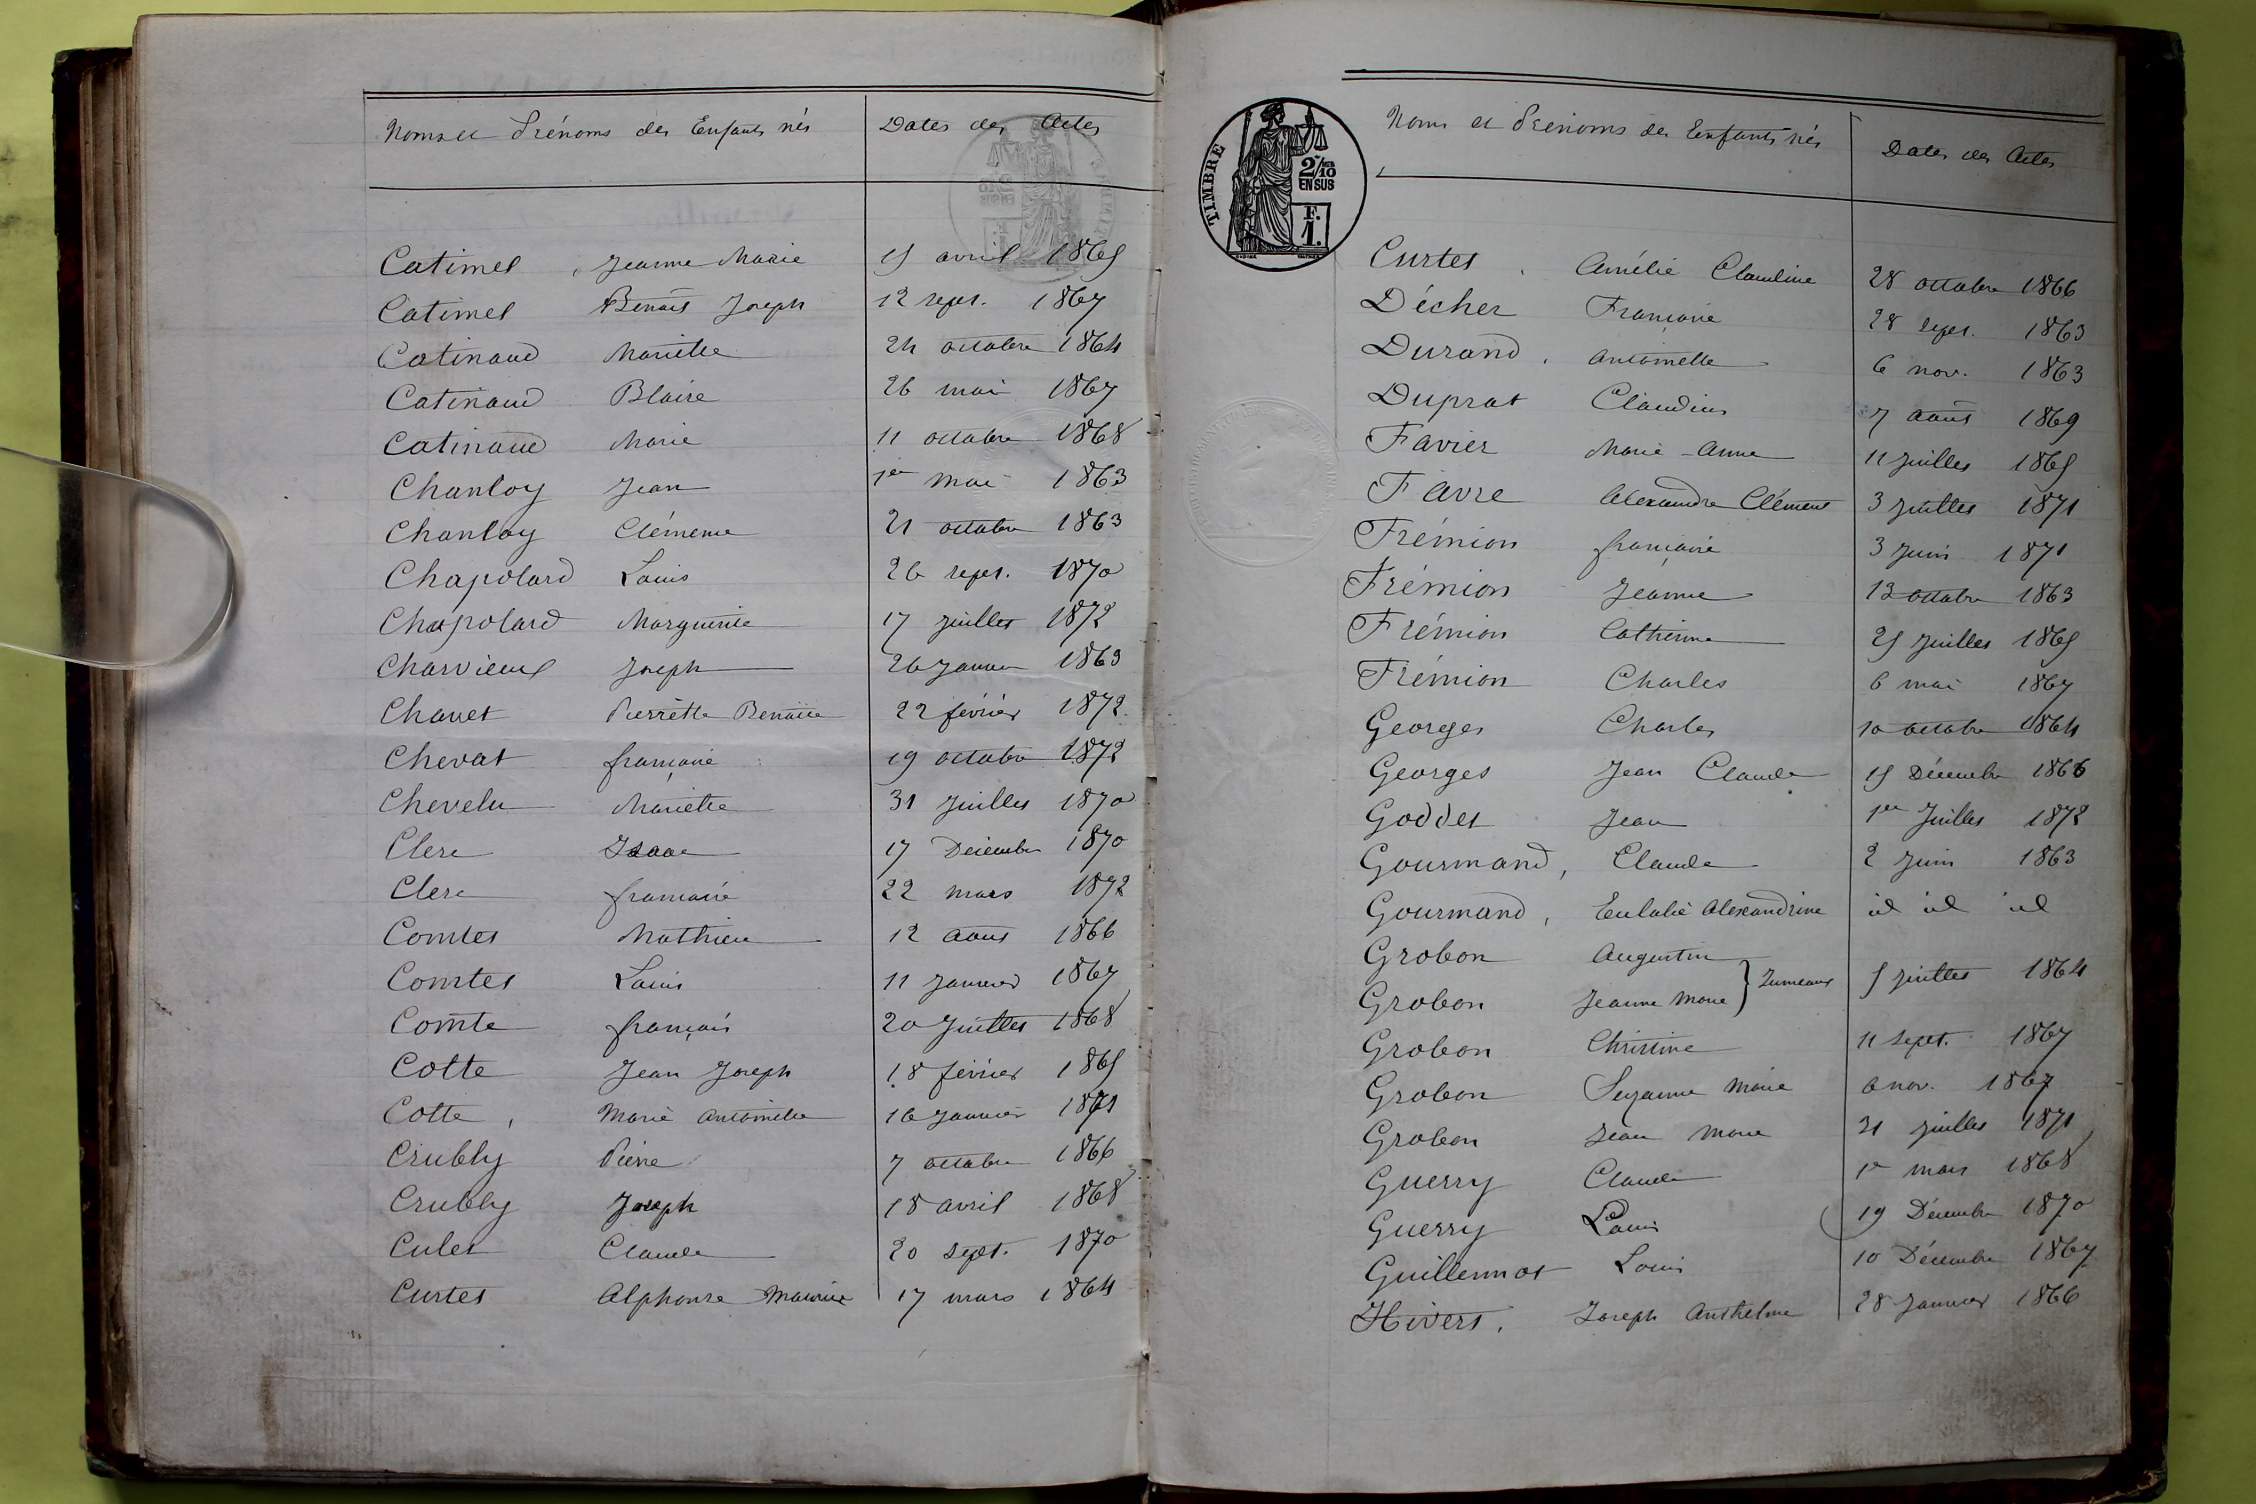 Noms et Prénoms des Enfants nés Dates des Actes
Catimel, Jeanne Marie 15 avril 1865
Catimel Benoit Joseph 12 sept. 1867
Catinaud Mariette 24 octobre 1864
Catinaud Blaise 26 mai 1867
Catinaud Marie 11 octobre 1868
Chanloy Jean 1er mai 1863
Chanloy Clémence 21 octobre 1863
Chapolard Louis 26 sept. 1870
Chapolard Marguerite 17 juillet 1872
Charvieux Joseph 26 Janvier 1863
Chavet Pierrette Benoite 22 février 1872
Chevat françoise 19 octobre 1872
Chevelu Mariette 31 Juillet 1870
Clerc Isaac 17 Décembre 1870
Clerc françoise 22 mars 1872
Comtet Mathieu 12 aout 1866
Comtet Louis 11 Janvier 1867
Comte français 20 Juillet 1868
Cotte Jean Joseph 18 février 1865
Cotte, Marie Antoinette 16 Janvier 1871
Crubly Pierre 7 octobre 1866
Crubly Joseph 18 avril 1868
Culet Claude 20 sept. 1870
Curtet Alphonse Maurice 17 mars 1864
TIMBRE
2/10
EN SUS
F.
1.
Noms et Prénoms des Enfants nés Dates des Actes
Curtet. Amélie Claudine 28 octobre 1866
Décher Françoise 28 sept. 1863
Durand. Antoinette 6 nov. 1863
Duprat Claudius 7 août 1869
Favier Marie-Anne 11 Juillet 1865
Favre Alexandre Clément 3 Juillet 1871
Frémion françoise 3 Juin 1871
Frémion Jeanne 13 octobre 1863
Frémion Catherine 25 Juillet 1865
Frémion Charles 6 mai 1867
Georges Charles 10 octobre 1864
Georges Jean Claude 15 Décembre 1866
Goddet Jean 1er Juillet 1872
Gourmand, Claude 2 Juin 1863
Gourmand, Eulalie Alexandrine id id id
Grobon Augustin
Grobon Jeanne Marie } Jumeaux 5 Juillet 1864
Grobon Christine 11 sept. 1867
Grobon Suzanne Marie 6 nov. 1867
Grobon Jean Marie 31 Juillet 1871
Guerry Claude 1er mars 1868
Guerry Louis 19 Décembre 1870
Guillermot Louis 10 Décembre 1867
Hivert. Joseph Anthelme 28 Janvier 1866